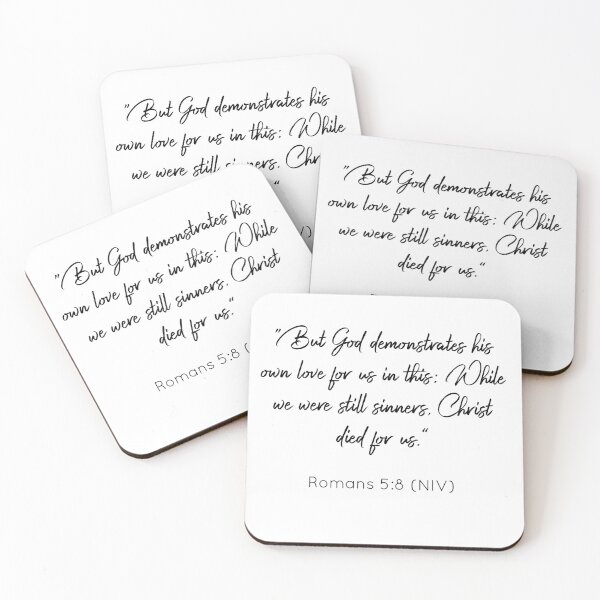 "But God demonstrates his
own love for us in this: While
we were still sinners,
"But God demonstrates his
own love for us in this: While
we were still sinners, Christ
died for us."
"But God demonstrates his
own love for us in this: While
we were still sinners, Christ
died for us."
Romans 5:8 (
"But God demonstrates his
own love for us in this: While
we were still sinners, Christ
died for us."
Romans 5:8 (NIV)